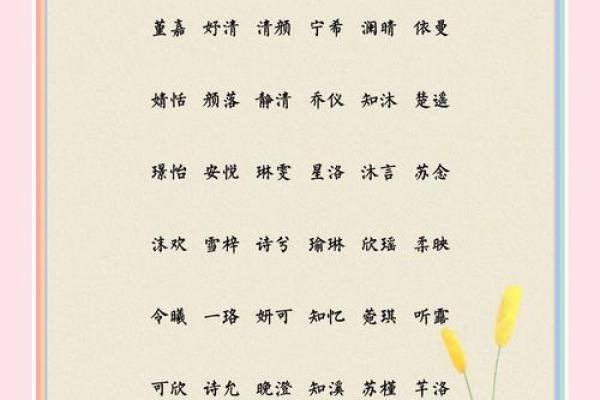 董嘉 妤清 清颜 宁希 澜晴 依曼
婧恬 颜落 静清 乔仪 知沐 楚遥
璟怡 安悦 琳雯 星洛 沐言 苏念
沫欢 雪梓 诗兮 瑜琳 欣瑶 柔映
令曦 一珞 妍可 知忆 菀琪 听露
可欣 诗允 晚澄 知溪 苏槿 芊洛